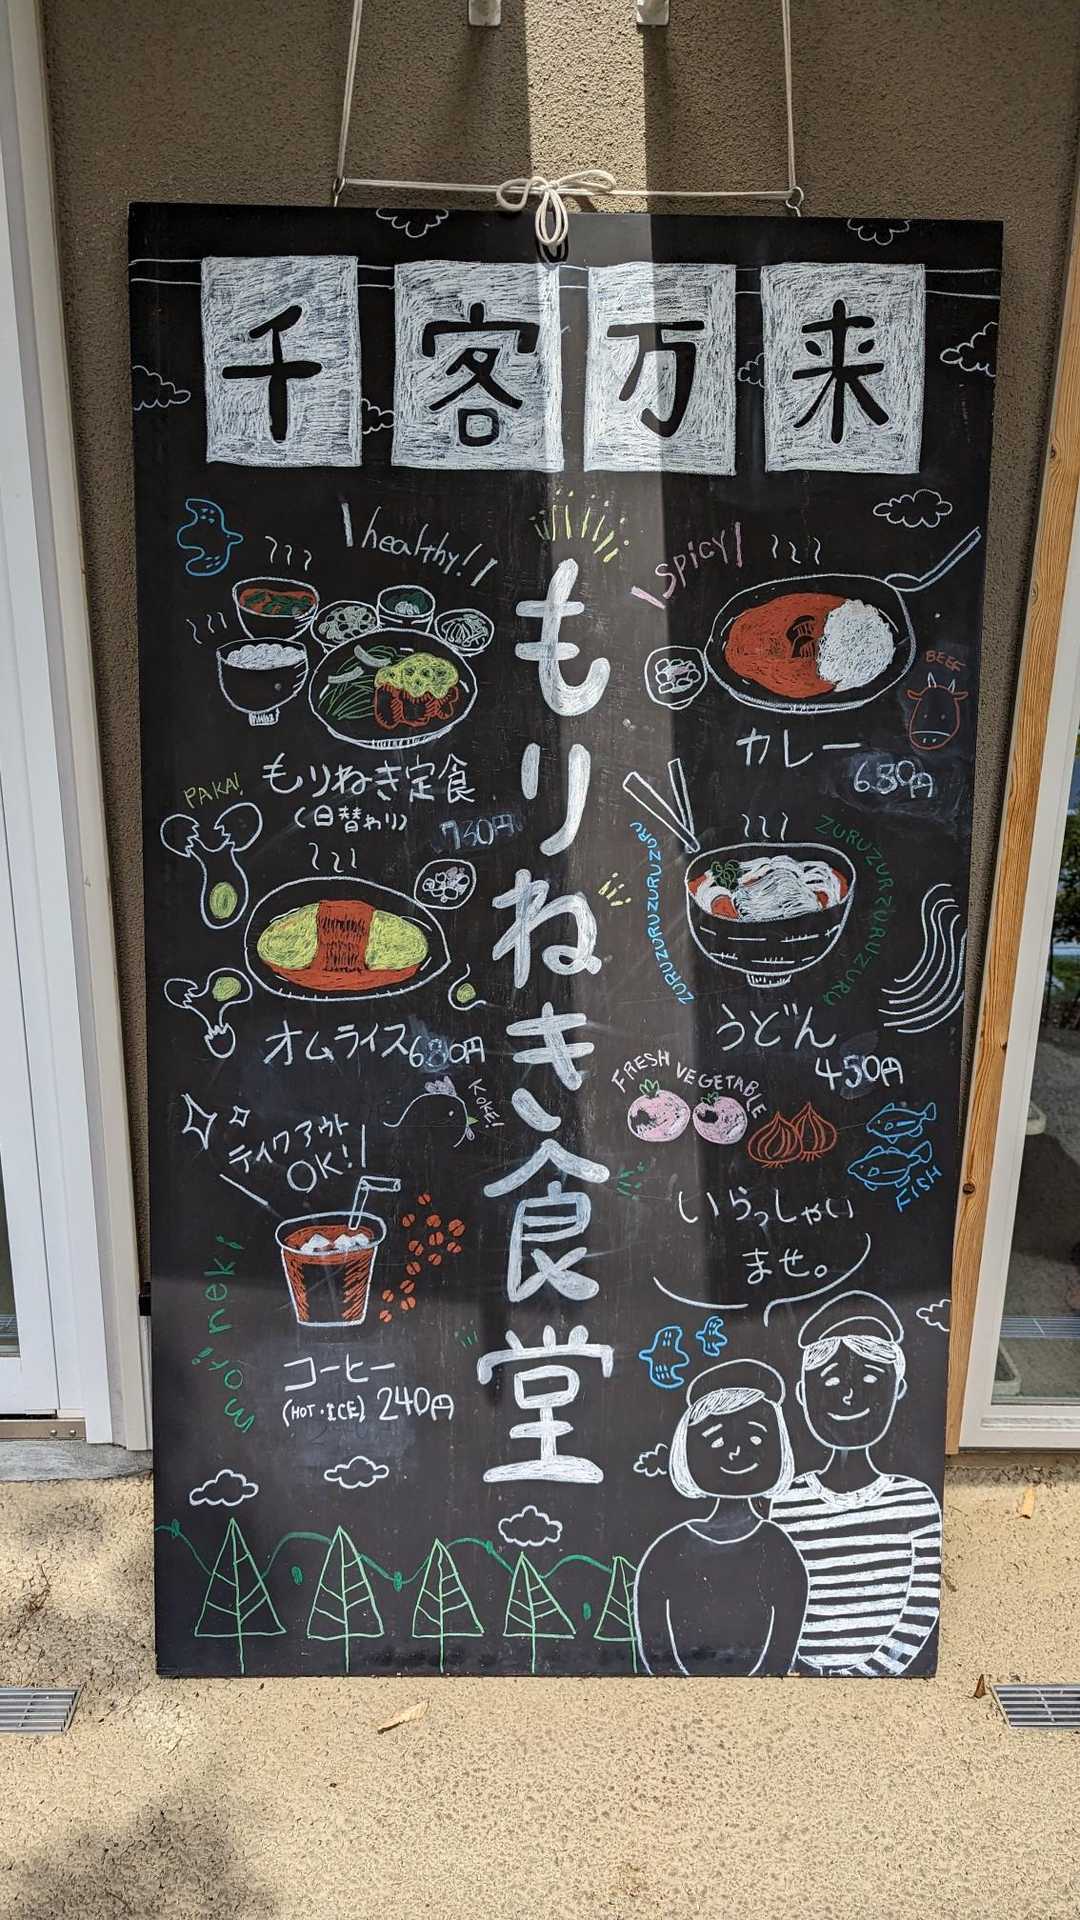 千客万来
もりねき食堂
healthy!!
もりねき定食
(日替わり)
730円
spicy
BEEF
カレー
680円
PAKA!
オムライス 680円
KOKE!
ZURUZURUZURUZURU
ZURUZURUZURUZURU
うどん
450円
FRESH VEGETABLE
FISH
テイクアウト
OK!!
mori neki
コーヒー
(HOT・ICE) 240円
いらっしゃい
ませ。